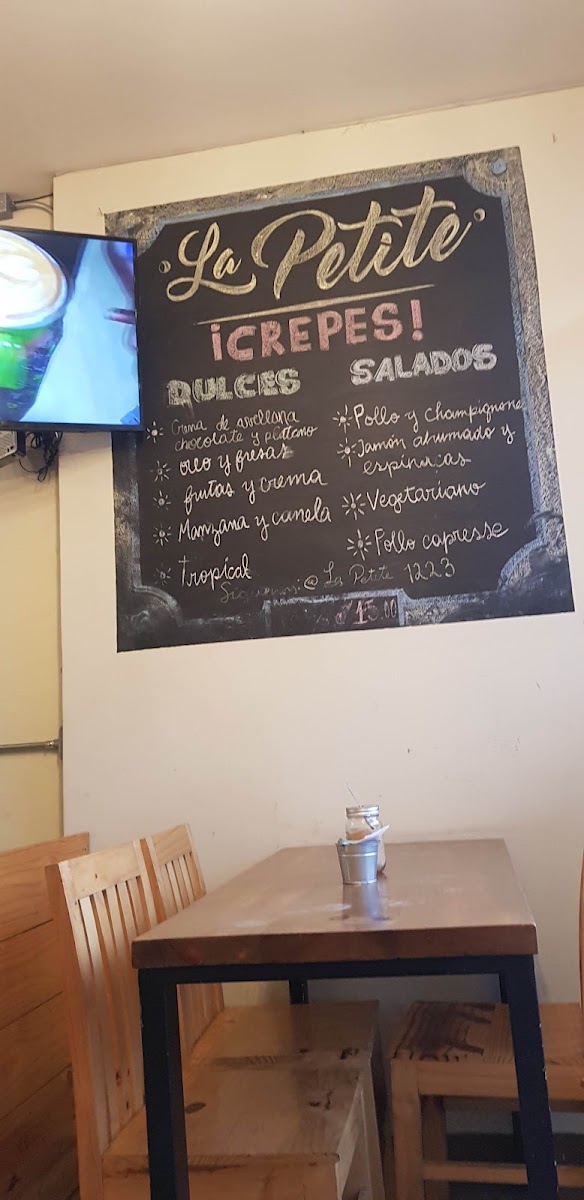 La Petite
¡CREPES!
DULCES
Crema de avellana
chocolate y platano
oreo y fresas
frutas y crema
Manzana y canela
Tropical
SALADOS
Pollo y champignones
Jamón ahumado y
espinacas
Vegetariano
Pollo capresse
Siguenos: @ La Petite 1223
15.00